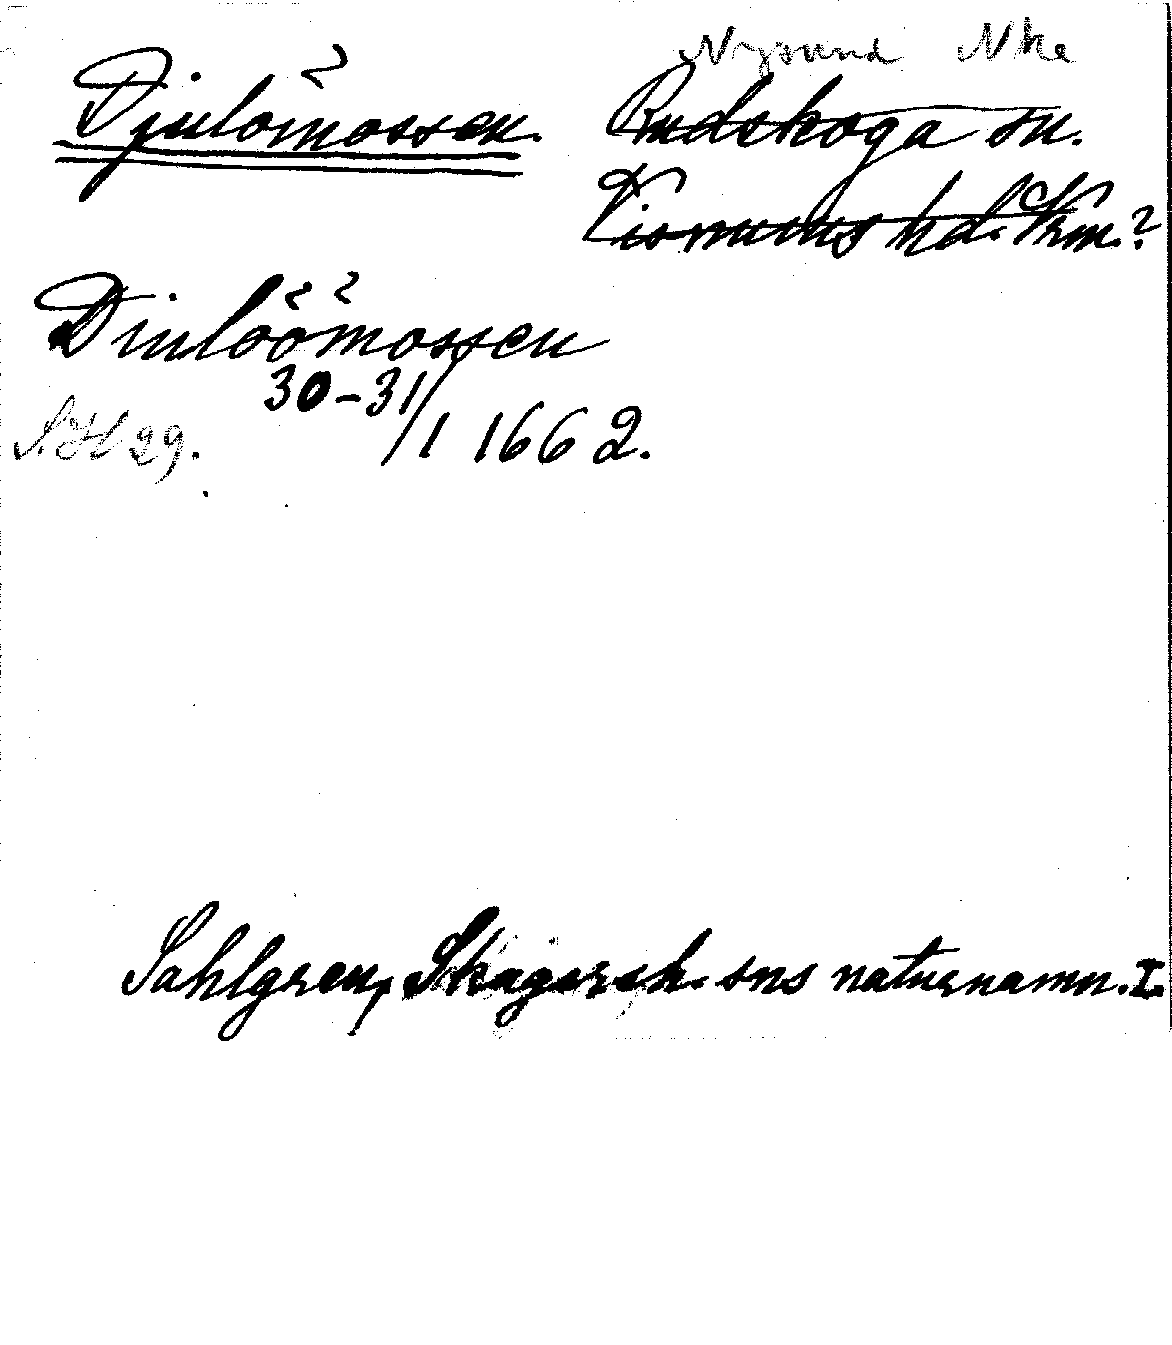 Nysund Nke
Djulömossen. Rudskoga sn.
Visnums hd. Vrm.?
Diulöömossen
30-31/1 1662.
29.
Sahlgren, Skagersh. sns naturnamn. I.